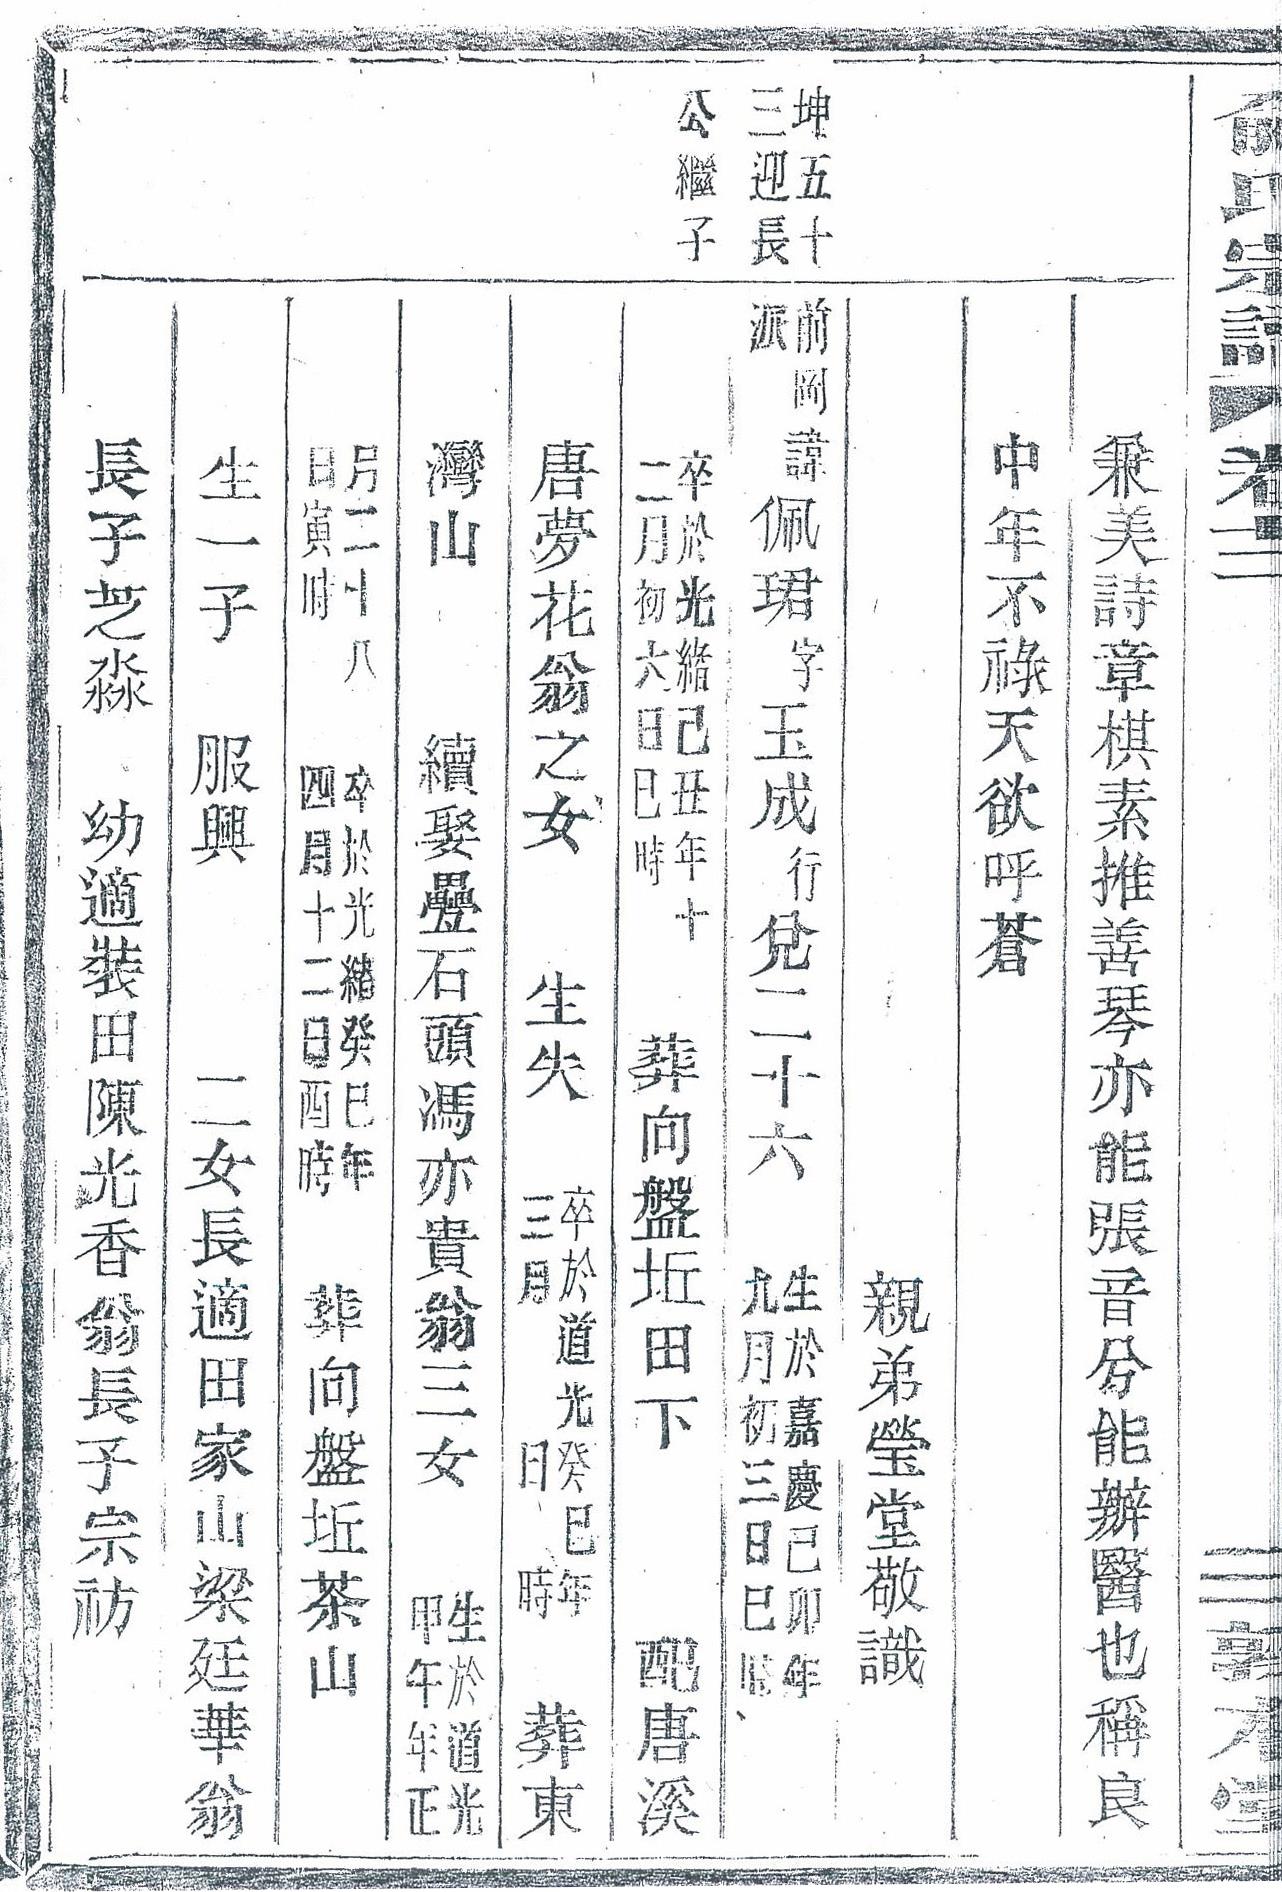 俞氏宗譜 卷二 三 敦本堂
兼美詩章棋素推善琴亦能張音分能辦醫也稱良
中年不祿天欲呼蒼
親弟瑩堂敬識
坤五十
三迎長
公繼子
前岡諱
派
佩珺字玉成行兌二十六
生於嘉慶己卯年
九月初三日巳時
卒於光緒己丑年十
二月初六日巳時
葬向盤坵田下 配唐溪
唐夢花翁之女 生失
卒於道光癸巳年
三月 日 時
葬東
灣山 續娶疊石頭馮亦貴翁三女
生於道光
甲午年正
月二十八
日寅時
卒於光緒癸巳年
四月十二日酉時
葬向盤坵茶山
生一子 服興 二女長適田家山梁廷華翁
長子芝淼 幼適裝田陳光香翁長子宗祊